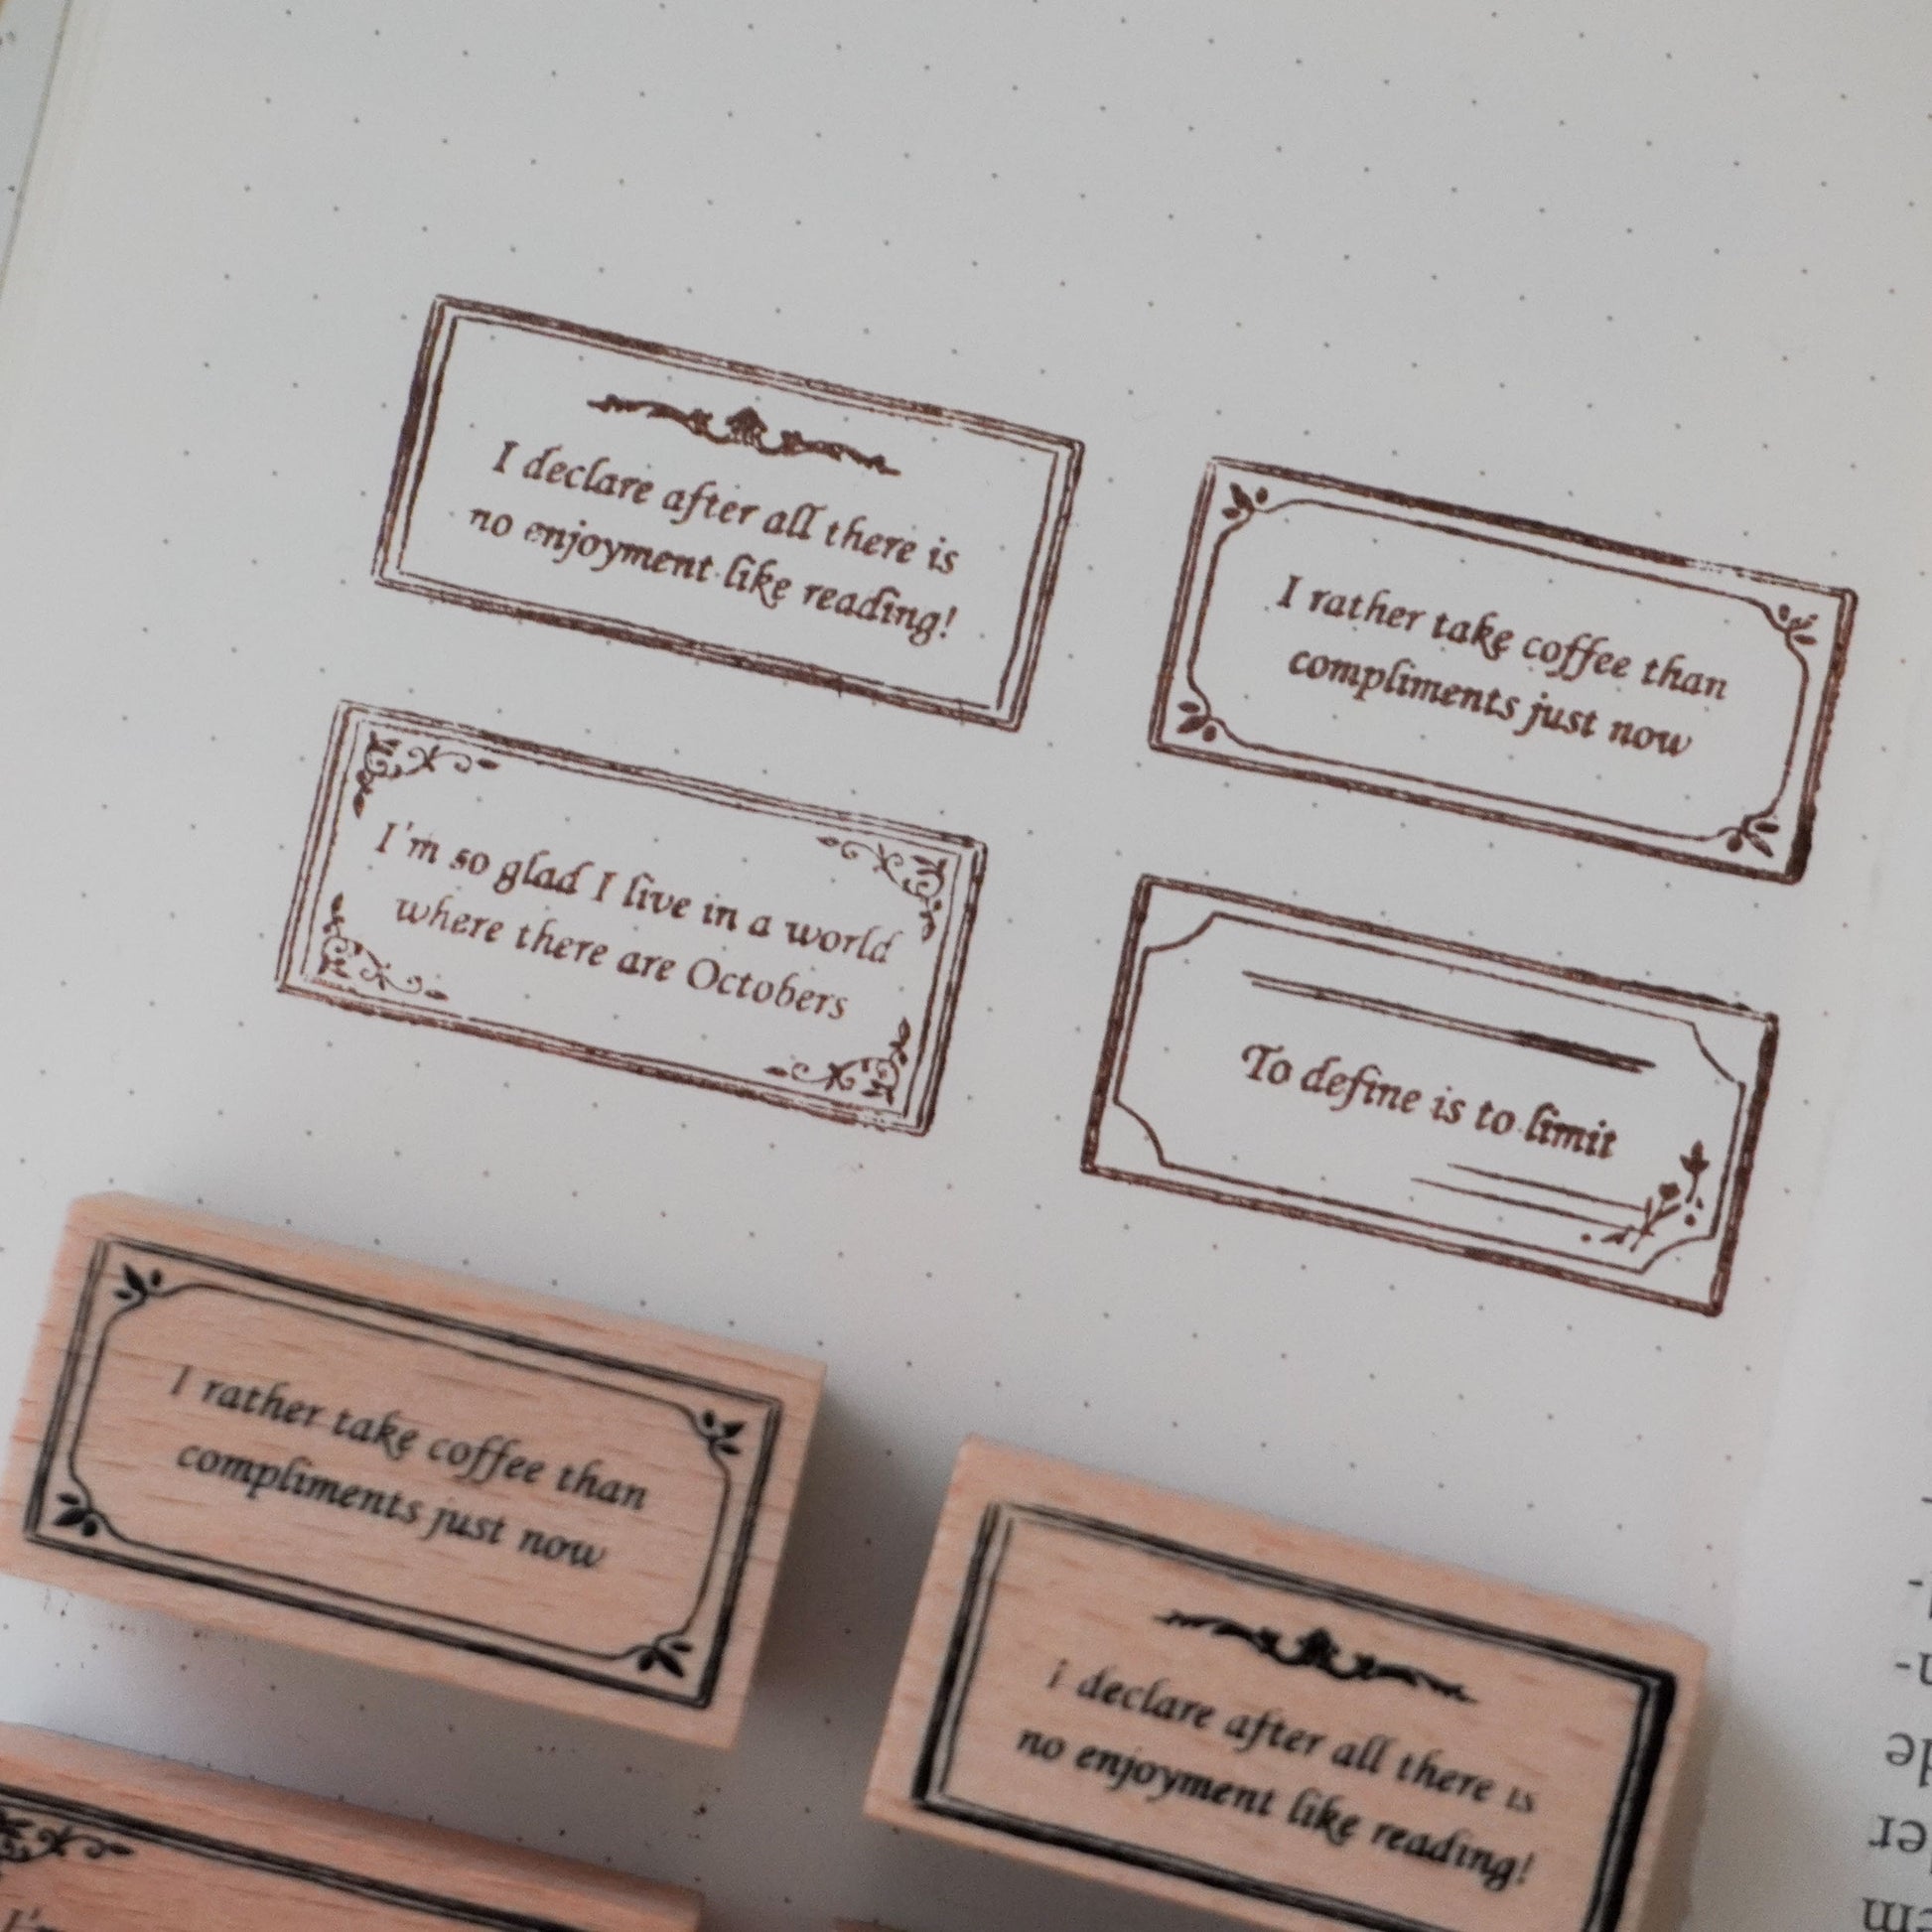 I declare after all there is
no enjoyment like reading!
I rather take coffee than
compliments just now
I'm so glad I live in a world
where there are Octobers
To define is to limit
I rather take coffee than
compliments just now
I declare after all there is
no enjoyment like reading!